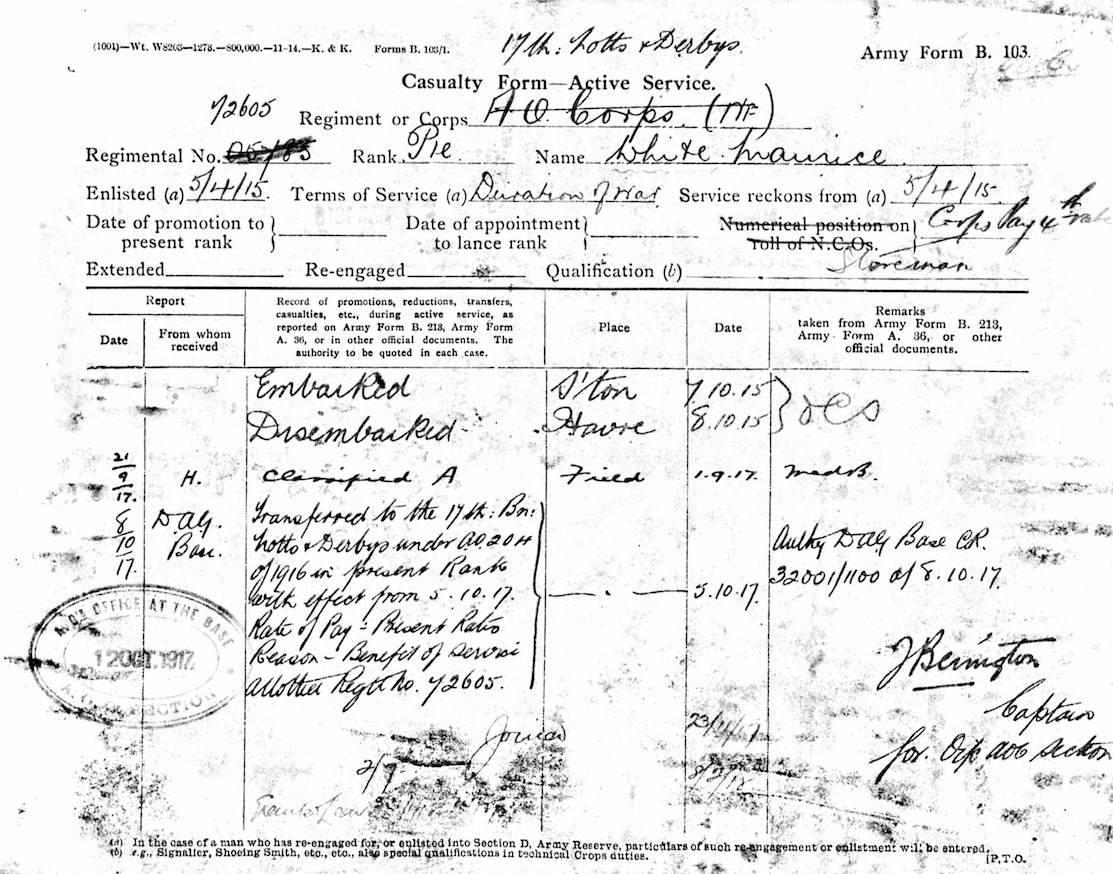 (1001)—Wt. W8203—1273.—800,000.—11-14.—K. & K. Forms B. 103/1.
17th: Notts & Derbys.
Army Form B. 103.
Casualty Form—Active Service.
72605
Regiment or Corps A O Corps. (TF)
Regimental No. Rank Pte Name White Maurice
Enlisted (a) 5/4/15. Terms of Service (a) Duration of War Service reckons from (a) 5/4/15.
Date of promotion to present rank } Date of appointment to lance rank } Numerical position on roll of N.C.Os. } Corps Pay 4th
Extended Re-engaged Qualification (b) Storeman
Report
Date
From whom received
Record of promotions, reductions, transfers, casualties, etc., during active service, as reported on Army Form B. 213, Army Form A. 36, or in other official documents. The authority to be quoted in each case.
Place
Date
Remarks
taken from Army Form B. 213, Army Form A. 36, or other official documents.
Embarked S'ton 7.10.15
Disembarked Havre 8.10.15
21/9/17. H. Classified A Field 1.9.17. Med B.
8/10/17. DAG. Transferred to the 17th: Bn:
Notts & Derbys under A.O. 204
of 1916 in present Rank
with effect from 5.10.17. 5.10.17.
Rate of Pay - Present Rates
Reason - Benefit of Service
Allotted Regtl No. 72605.
Authy DAG Base CR.
32001/1100 of 8.10.17.
A.G'S OFFICE AT THE BASE
12 OCT. 1917
SECTION
J Berington
Captain
for O i/c AOC Section
Joined
(a) In the case of a man who has re-engaged for, or enlisted into Section D, Army Reserve, particulars of such re-engagement or enlistment will be entered.
(b) e.g., Signaller, Shoeing Smith, etc., etc., also special qualifications in technical Crops duties.
[P.T.O.